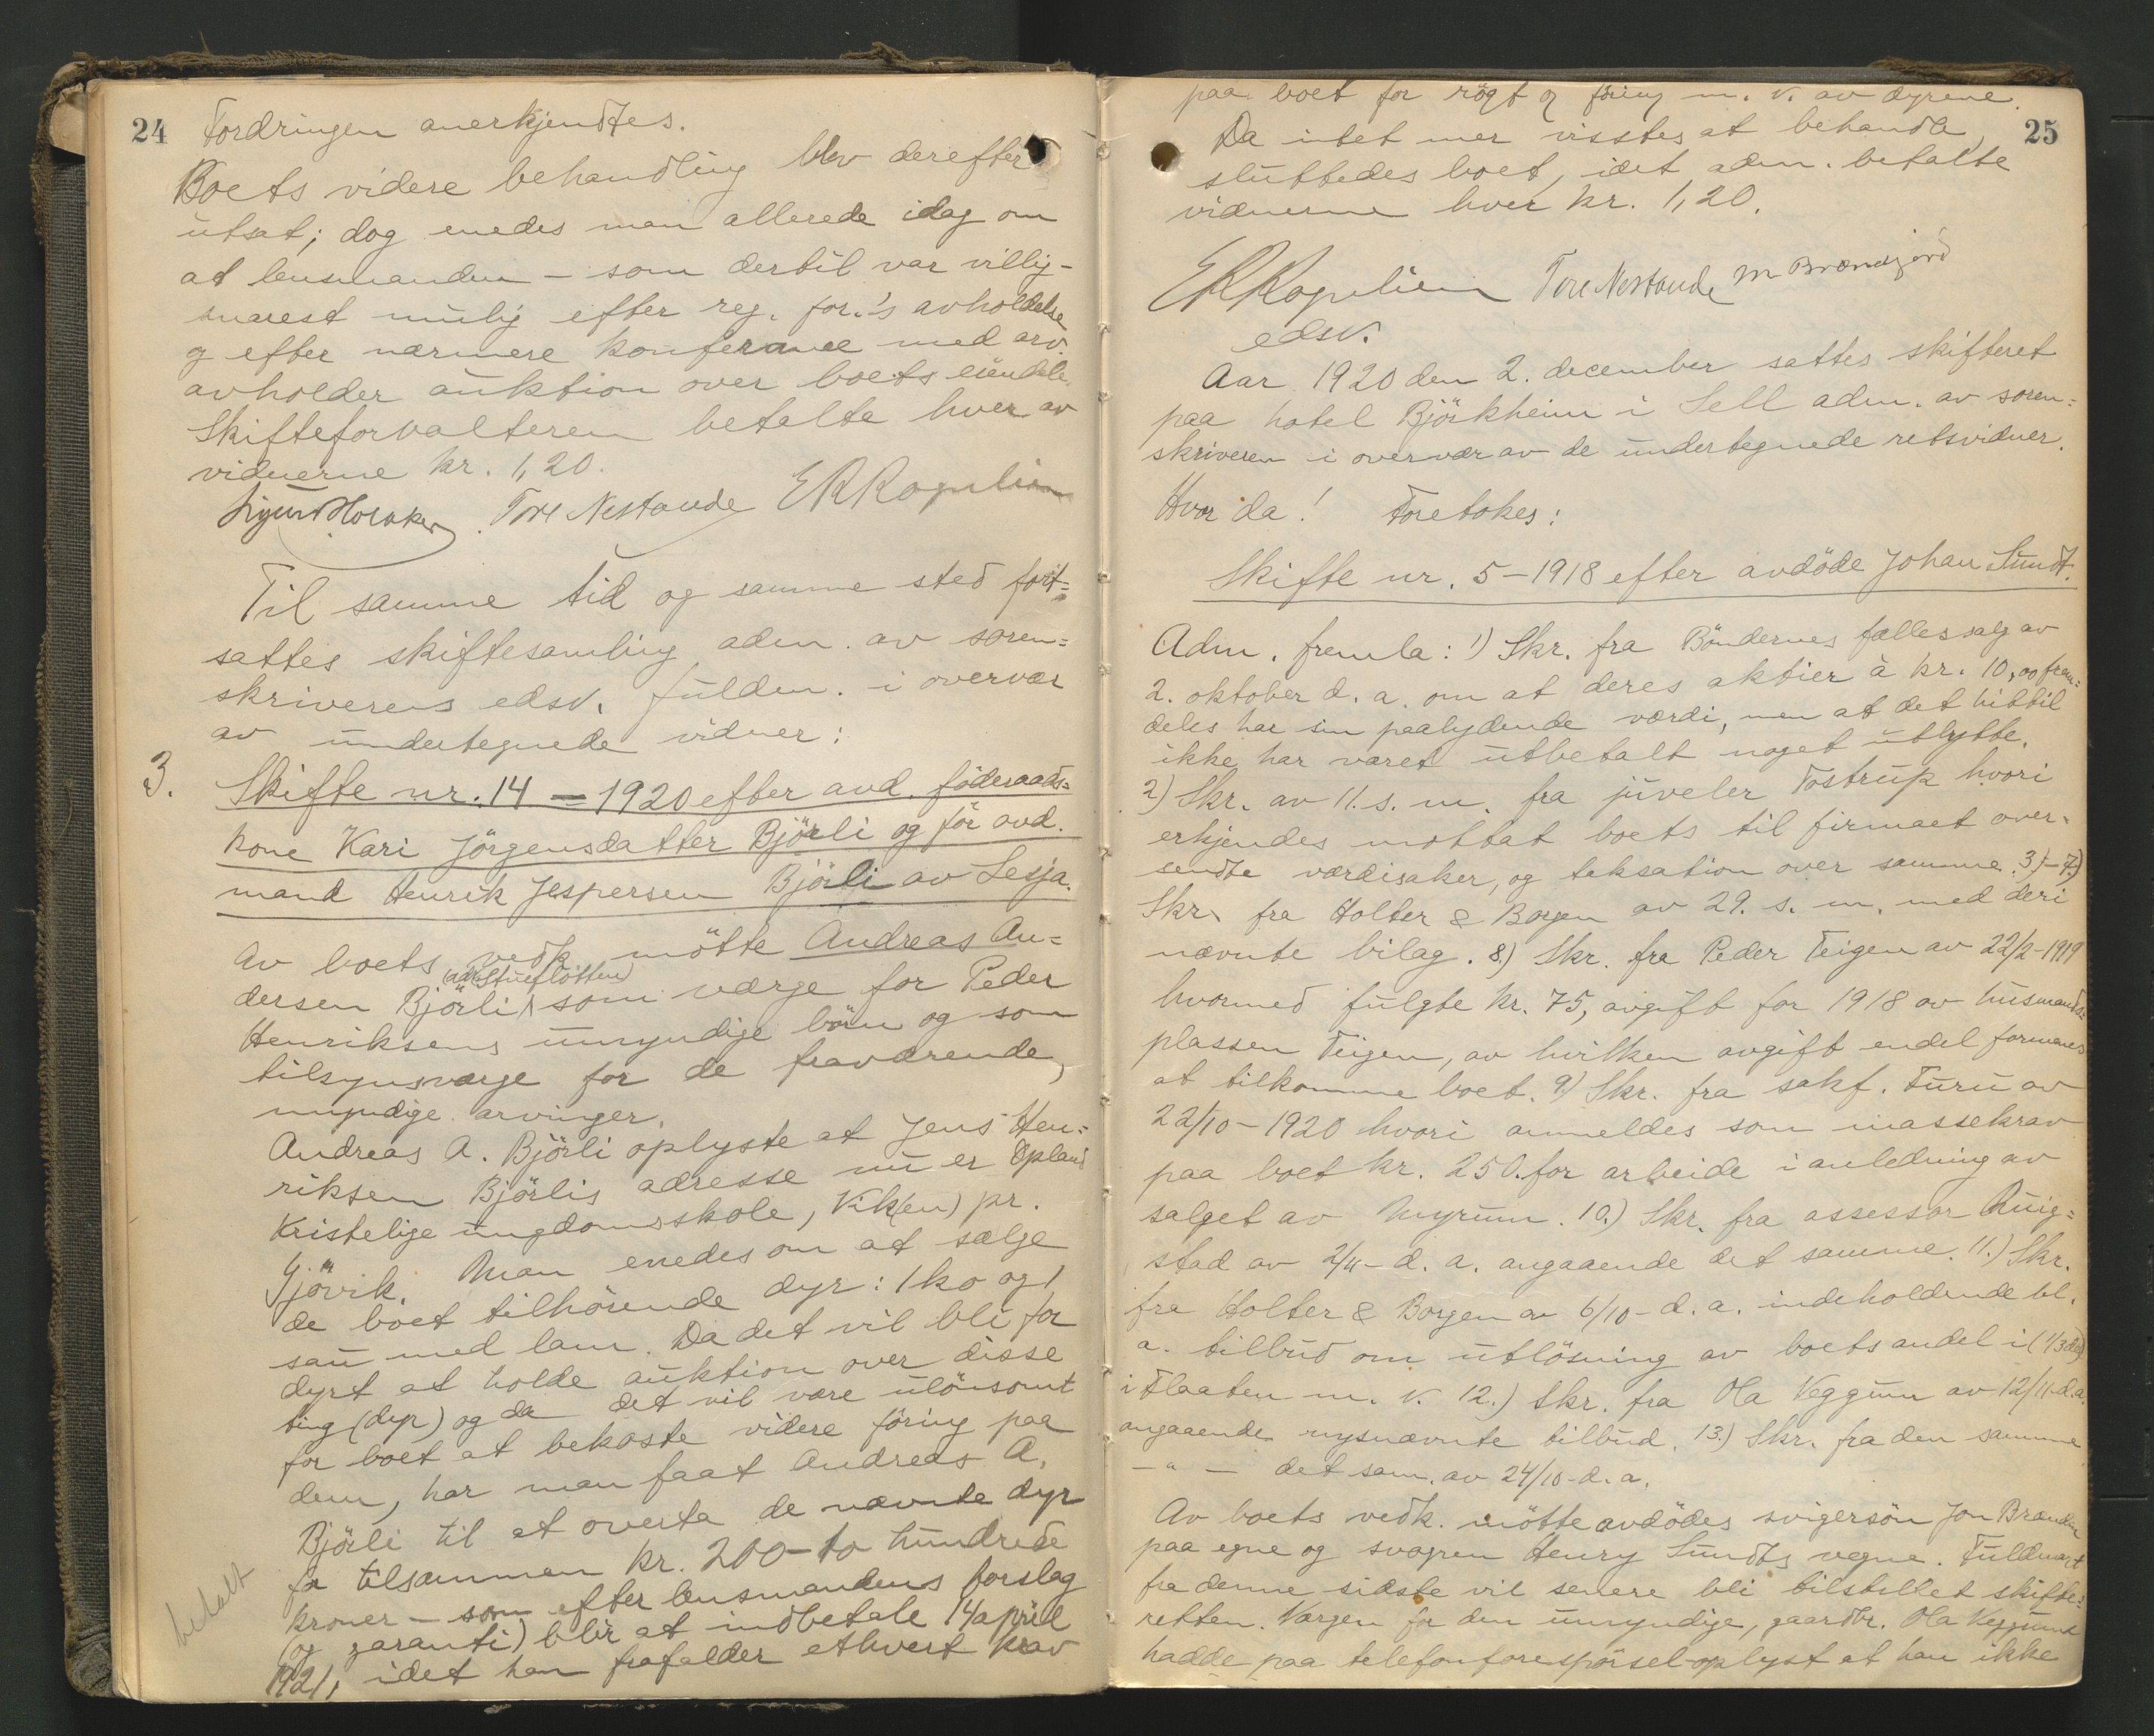 24
Fordringen anerkjendtes.
Boets videre behandling blev derefter
utsat; dog enedes man allerede idag om
at lensmanden – som dertil var villig –
snarest mulig efter reg. for.'s avholdelse
og efter nærmere konferance med arv.
avholder auktion over boets eiendele.
Skifteforvalteren betalte hver av
vidnerne kr. 1,20.
Tore Nestande
Til samme tid og samme sted fort=
sattes skiftesamling adm. av soren=
skriverens edsv. fuldm. i overvær
av undertegnede vidner:
3. Skifte nr. 14 – 1920 efter avd. föderaads=
kone Kari Jörgensdatter Björli og för avd.
mand Henrik Jespersen Björli av Lesja.
Av boets vedk. mötte Andreas An=
(adr. Stueflötten)
dersen Björli som værge for Peder
Henriksens umyndige börn og som
tilsynsværge for de fraværende,
myndige arvinger.
Andreas A. Björli oplyste at Jens Hen=
riksen Björlis adresse nu er Opland
Kristelige ungdomsskole, Vik(en) pr.
Gjövik. Man enedes om at sælge
de boet tilhörende dyr: 1 ko og 1
sau med lam. Da det vil bli for
dyrt at holde auktion over disse
ting (dyr) og da det vil være ulönsomt
for boet at bekoste videre föring paa
dem, har man faat Andreas A.
Björli til at overta de nævnte dyr
for tilsammen kr. 200 – to hundrede
kroner – som efter lensmandens forslag
(og garanti) blir at indbetale 14 april
1921, idet han frafalder ethvert krav
betalt
25
paa boet for rögt og föring m. v. av dyrene.
Da intet mer visstes at behandle,
sluttedes boet, idet adm. betalte
vidnerne hver kr. 1,20.
Tore Nestande
edsv.
Aar 1920 den 2. december sattes skifteret
paa hotel Björkheim i Sell adm. av soren=
skriveren i overvær av de undertegnede retsvidner.
Hvor da! Foretokes:
Skifte nr. 5 – 1918 efter avdöde Johan Sundt.
Adm. fremla: 1) Skr. fra Böndernes fællessalg av
2. oktober d. a. om at deres aktier à kr. 10,00 frem=
deles har sin paalydende værdi, men at det hittil
ikke har været utbetalt noget utbytte.
2) Skr. av 11. s. m. fra juveler Tostrup hvori
erkjendes mottat boets til firmaet over=
sendte værdisaker, og taksation over samme. 3)–7.)
Skr. fra Holter & Borgen av 29. s. m. med deri
nævnte bilag. 8.) Skr. fra Peder Teigen av 22/2-1919
hvormed fulgte kr. 75, avgift for 1918 av husmands=
plassen Teigen, av hvilken avgift endel formenes
at tilkomme boet. 9.) Skr. fra sakf. Furu av
22/10 – 1920 hvori anmeldes som massekrav
paa boet kr. 250. for arbeide i anledning av
salget av Myrum. 10.) Skr. fra assessor Ruig=
stad av 2/11- d. a. angaaende det samme. 11.) Skr.
fra Holter & Borgen av 6/10- d. a. indeholdende bl.
a. tilbud om utlösning av boets andel i (1/3 del)
i Flaaten m. v. 12.) Skr. fra Ola Veggum av 12/11- d. a.
angaaende nysnævnte tilbud. 13.) Skr. fra den samme
– " – det sam. av 24/10- d. a.
Av boets vedk. mötte avdödes svigersön Jon
paa egne og svogren Henry Sundts vegne. Fuldmagt
fra denne sidste vil senere bli tilstillet skifte=
retten. Værgen for den umyndige, gaardbr. Ola Veggum
hadde paa telefonforespörsel oplyst at han ikke